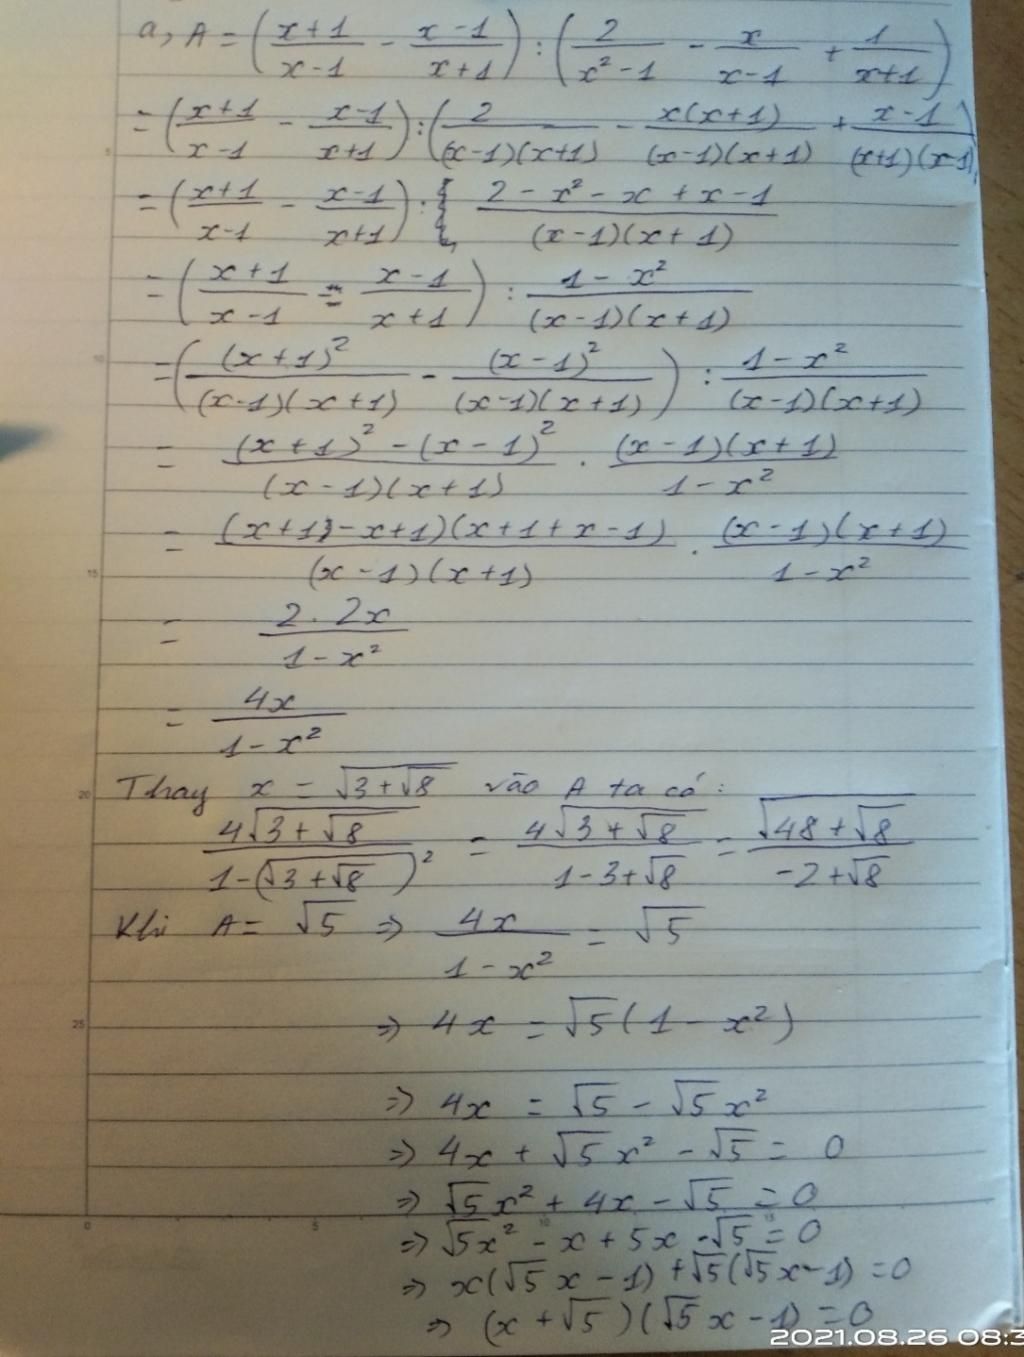 a, A = ( (x+1)/(x-1) - (x-1)/(x+1) ) : ( 2/(x²-1) - x/(x-1) + 1/(x+1) )
= ( (x+1)/(x-1) - (x-1)/(x+1) ) : ( 2/((x-1)(x+1)) - x(x+1)/((x-1)(x+1)) + (x-1)/((x+1)(x-1)) )
= ( (x+1)/(x-1) - (x-1)/(x+1) ) : (2 - x² - x + x - 1)/((x-1)(x+1))
= ( (x+1)/(x-1) - (x-1)/(x+1) ) : (1-x²)/((x-1)(x+1))
= ( (x+1)²/((x-1)(x+1)) - (x-1)²/((x-1)(x+1)) ) : (1-x²)/((x-1)(x+1))
= ((x+1)² - (x-1)²)/((x-1)(x+1)) . ((x-1)(x+1))/(1-x²)
= ((x+1)-x+1)(x+1+x-1)/((x-1)(x+1)) . ((x-1)(x+1))/(1-x²)
= (2.2x)/(1-x²)
= 4x/(1-x²)
Thay x = √(3+√8) vào A ta có:
4√(3+√8)/(1-(√(3+√8))²) = 4√(3+√8)/(1-3+√8) = √(48+√8)/(-2+√8)
Khi A = √5 => 4x/(1-x²) = √5
=> 4x = √5(1-x²)
=> 4x = √5 - √5x²
=> 4x + √5x² - √5 = 0
=> √5x² + 4x - √5 = 0
=> √5x² - x + 5x - √5 = 0
=> x(√5x-1) + √5(√5x-1) = 0
=> (x+√5)(√5x-1) = 0
2021.08.26 08:3